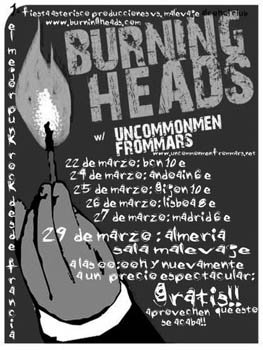 fiesta asterisco producciones vs. malevaje
www.burningheads.com
el mejor punk rock desde francia
BURNING
HEADS
w/ UNCOMMONMEN
FROMMARS
www.uncommonmenfrommars.net
22 de marzo: bcn 10 e
24 de marzo: andoain 6 e
25 de marzo: gijon 10 e
26 de marzo: lisboa 8 e
27 de marzo: madrid 6 e
29 de marzo: almeria
sala malevaje
a las 00:00h y nuevamente
a un precio espectacular:
gratis!!
aprovechen que esto
se acaba!!